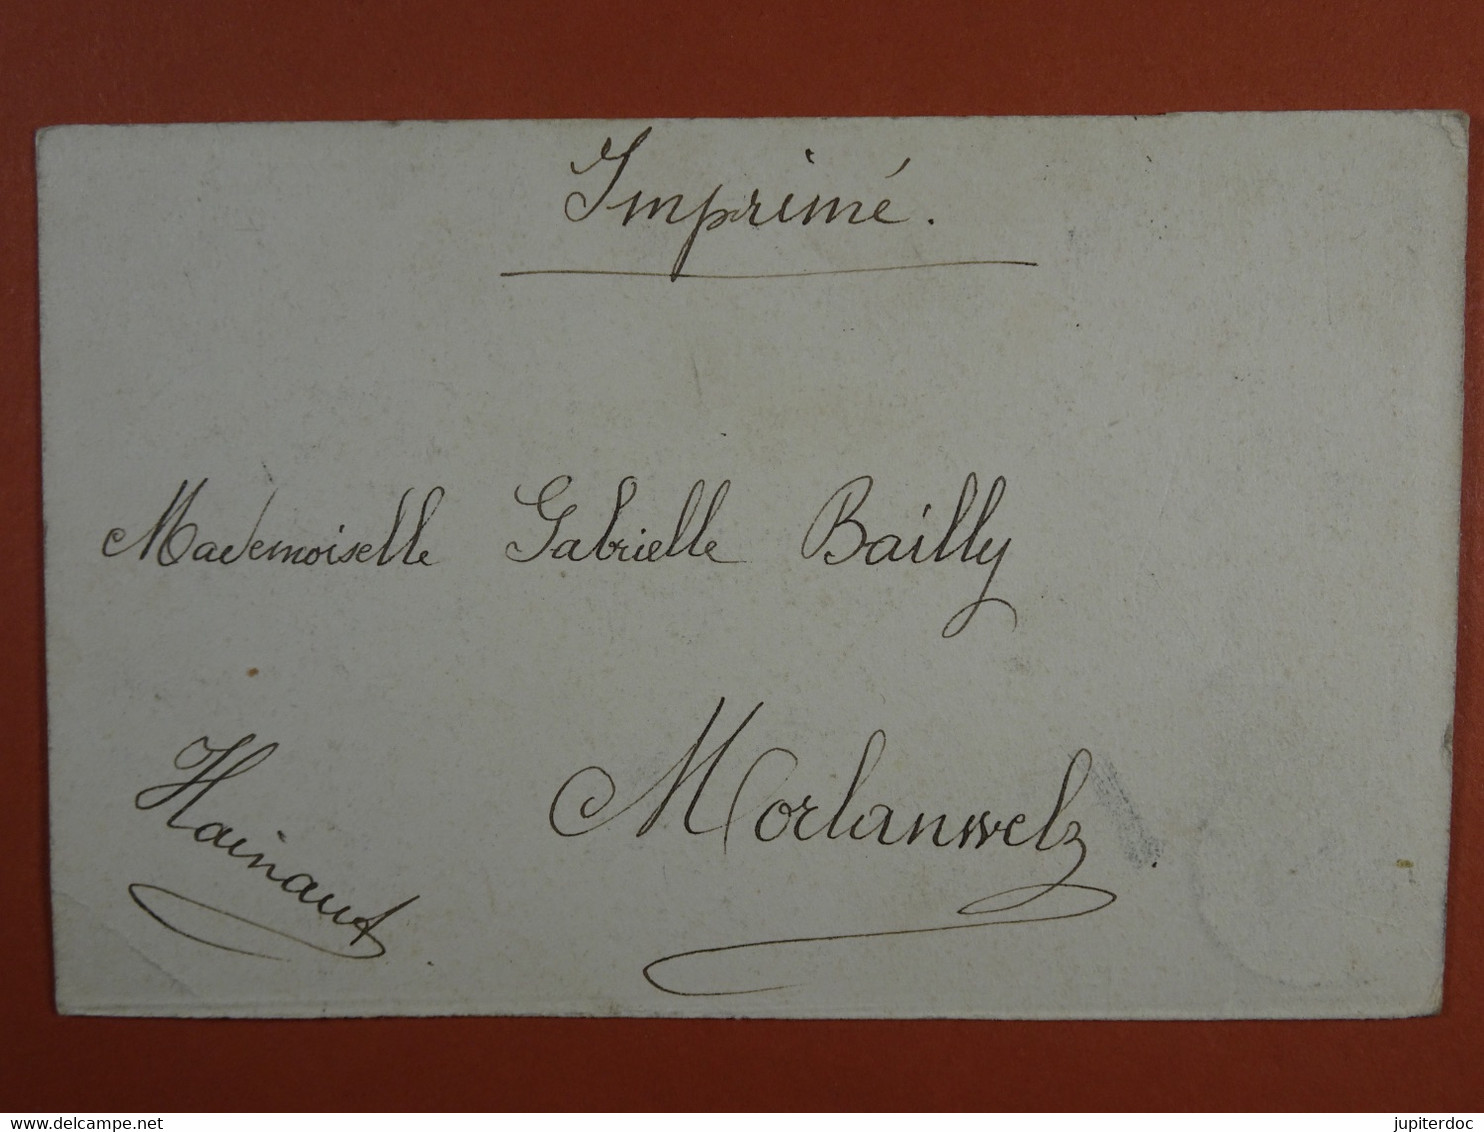 Imprimé.
Mademoiselle Gabrielle Bailly
Morlanwelz.
Hainaut.
delcampe.net
jupiterdoc